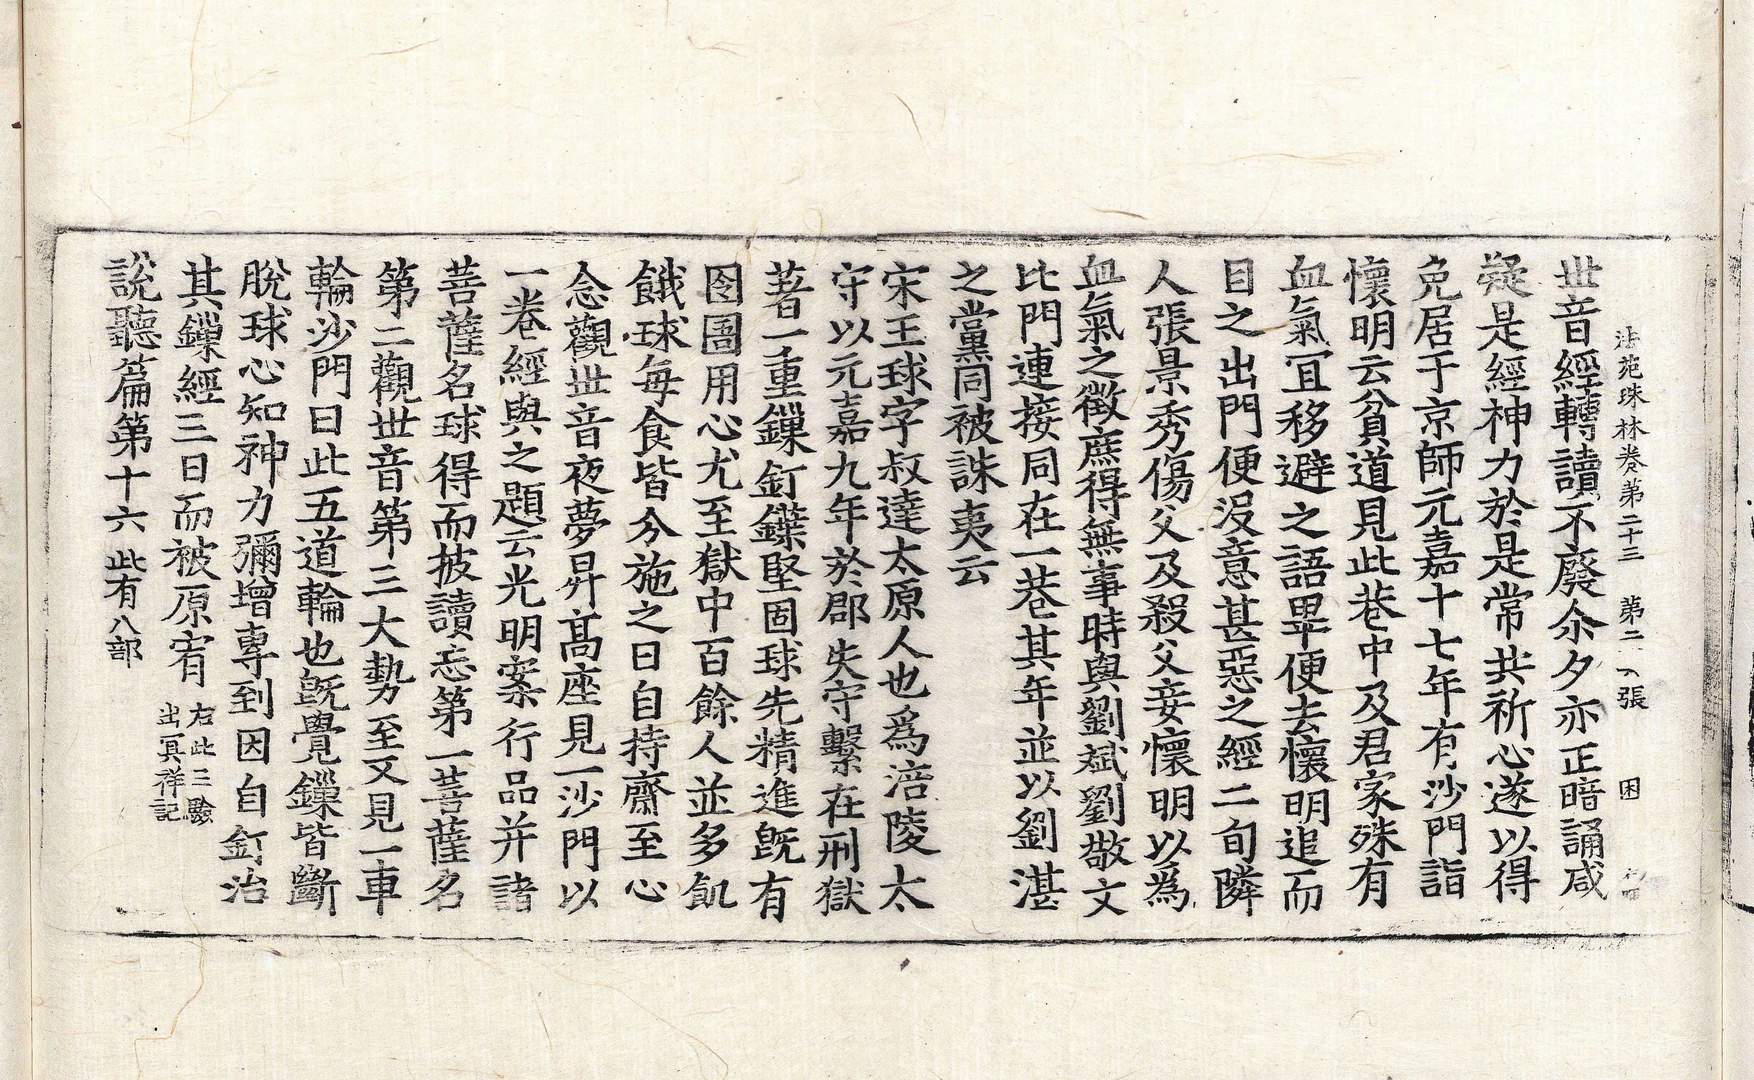 法苑珠林卷第二十三 第二 張 困
世音經轉讀不廢余夕亦正暗誦咸
疑是經神力於是常共祈心遂以得
免居于京師元嘉十七年有沙門詣
懷明云貧道見此巷中及君家殊有
血氣冝移避之語畢便去懷明追而
目之出門便沒意甚惡之經二旬隣
人張景秀傷父及殺父妾懷明以爲
血氣之徵庶得無事時與劉斌劉敬文
比門連接同在一巷其年並以劉湛
之黨同被誅夷云
宋王球字叔達太原人也爲涪陵太
守以元嘉九年於郡失守繫在刑獄
著一重鏁釘鍱堅固球先精進旣有
囹圄用心尤至獄中百餘人並多飢
餓球每食皆分施之日自持齋至心
念觀世音夜夢昇高座見一沙門以
一卷經與之題云光明案行品并諸
菩薩名球得而披讀忘第一菩薩名
第二觀世音第三大勢至又見一車
輪沙門曰此五道輪也旣覺鏁皆斷
脫球心知神力彌增專到因自釘治
其鏁經三日而被原宥 右此三驗出冥祥記
說聽篇第十六 此有八部